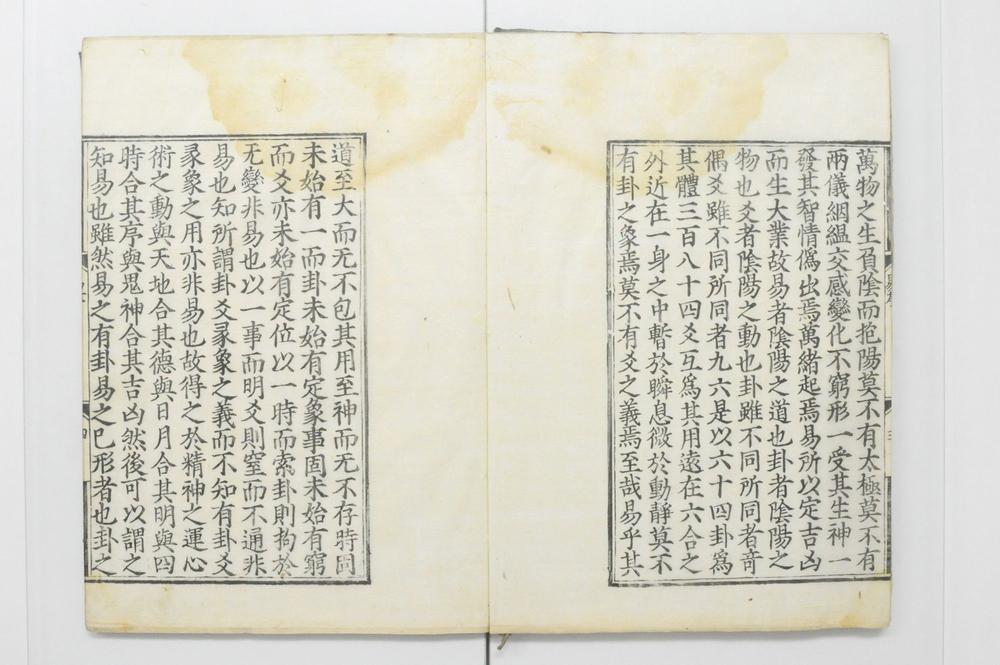 萬物之生負陰而抱陽莫不有太極莫不有
兩儀絪緼交感變化不窮形一受其生神一
發其智情僞出焉萬緒起焉易所以定吉凶
而生大業故易者陰陽之道也卦者陰陽之
物也爻者陰陽之動也卦雖不同所同者奇
偶爻雖不同所同者九六是以六十四卦爲
其體三百八十四爻互爲其用遠在六合之
外近在一身之中暫於瞬息微於動靜莫不
有卦之象焉莫不有爻之義焉至哉易乎其
道至大而无不包其用至神而无不存時固
未始有一而卦未始有定象事固未始有窮
而爻亦未始有定位以一時而索卦則拘於
无變非易也以一事而明爻則窒而不通非
易也知所謂卦爻彖象之義而不知有卦爻
彖象之用亦非易也故得之於精神之運心
術之動與天地合其德與日月合其明與四
時合其序與鬼神合其吉凶然後可以謂之
知易也雖然易之有卦易之已形者也卦之
易序
三
四